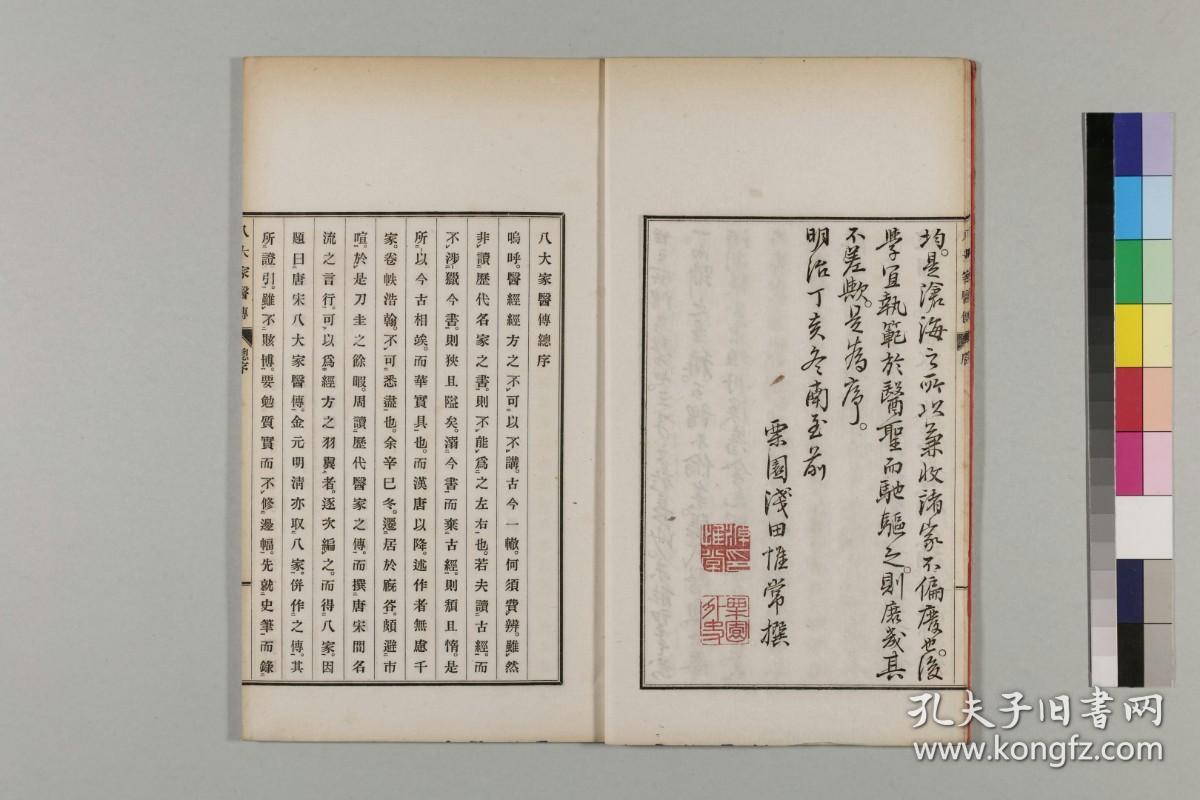 均。是滄海之所以兼收諸家不偏廢也。後
學宜執範於醫聖而馳驅之。則庶幾其
不差歟。是為序。
明治丁亥冬南至前
栗園淺田惟常撰
惟常
栗園
外史
八大家醫傳
序
八大家醫傳總序
嗚呼。醫經經方之不可以不講。古今一轍。何須費辨。雖然
非讀歷代名家之書。則不能爲之左右也。若夫讀古經。而
不涉獵今書。則狹且隘矣。溺今書而棄古經。則頹且惰。是
所以今古相竢。而華實具也。而漢唐以降。述作者無慮千
家。卷帙浩翰。不可悉盡也。余辛巳冬。遷居於麻谷。頗避市
喧。於是刀圭之餘暇。周讀歷代醫家之傳。而撰唐宋間名
流之言行。可以爲經方之羽翼者。逐次編之。而得八家。因
題曰唐宋八大家醫傳。金元明清亦取八家。併作之傳。其
所證引。雖不賅博。要勉質實而不修邊幅。先就史筆而錄
八大家醫傳
總序
孔夫子旧书网
www.kongfz.com